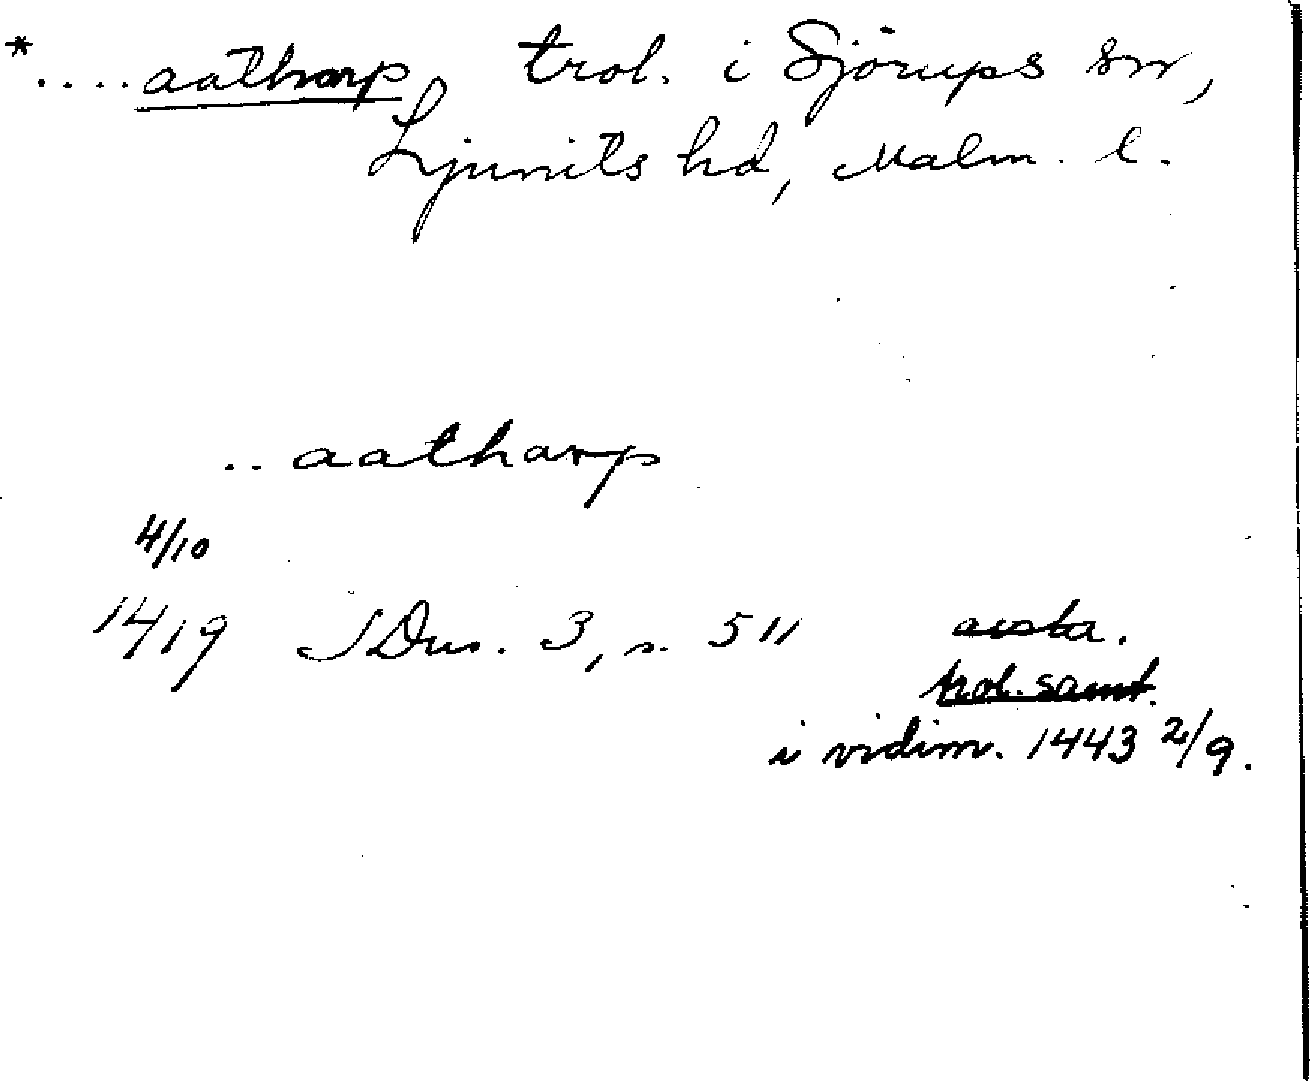 *....aatharp, trol. i Sjörups sn,
Ljunits hd, Malm. l.
..aatharp
4/10
1419 SDns. 3, s. 511 avskr.
trol. samt.
i vidim. 1443 2/9.